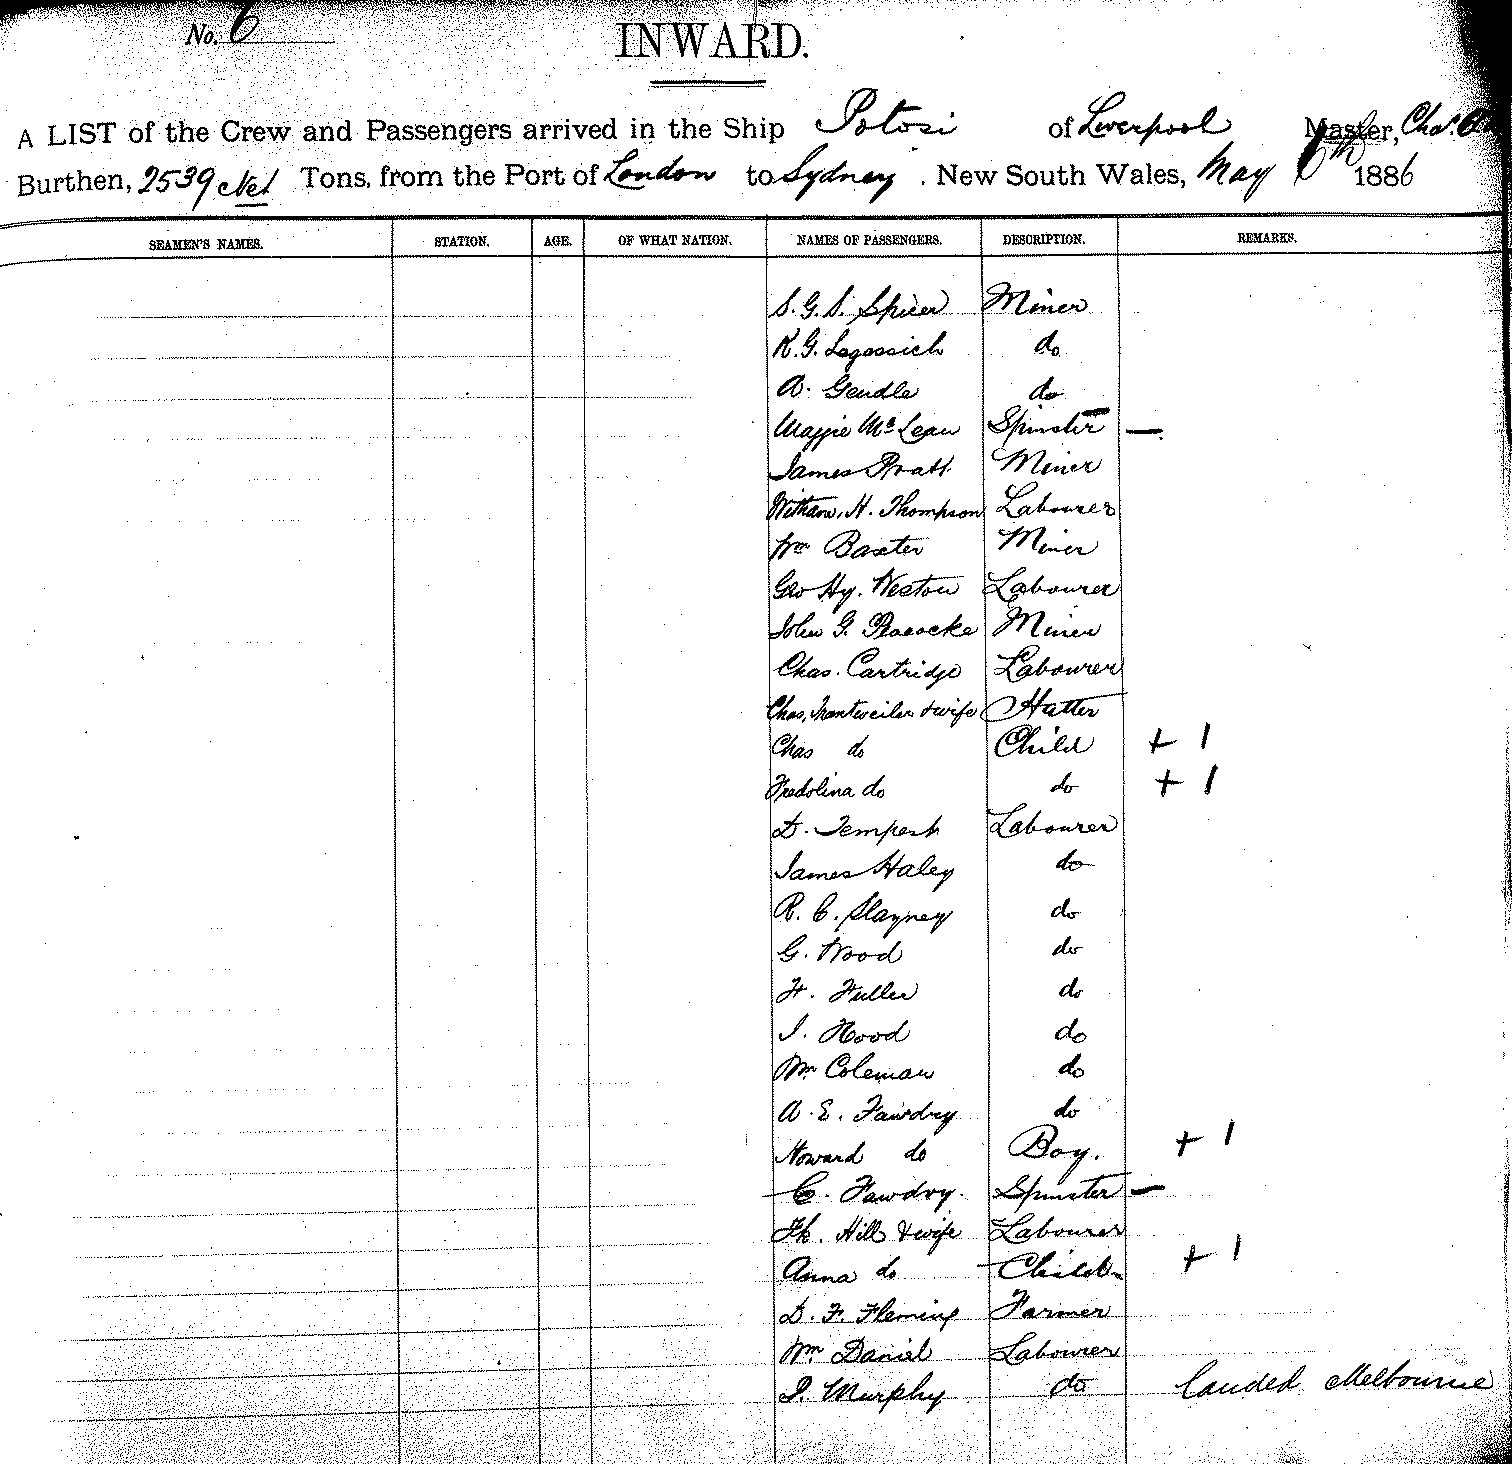 No. 6
INWARD.
A LIST of the Crew and Passengers arrived in the Ship Potosi of Liverpool Master, Chas.
Burthen, 2539 Net Tons, from the Port of London to Sydney, New South Wales, May 6th 1886
SEAMEN'S NAMES. STATION. AGE. OF WHAT NATION. NAMES OF PASSENGERS. DESCRIPTION. REMARKS.
S. G. S. Spicer Miner
K. G. do
A. Gendle do
Maggie Mc Lean Spinster —
James Pratt Miner
H. Thompson Labourer
Wm Baxter Miner
Geo Hy. Weston Labourer
John G. Peacocke Miner
Chas. Cartridge Labourer
Chas. & wife Hatter
Chas do Child + 1
Fredolina do do + 1
D. Tempest Labourer
James Haley do
R. C. Slayney do
G. Wood do
F. Fuller do
J. Hood do
Wm Coleman do
A. E. Fawdry do
Howard do Boy. + 1
C. Fawdry. Spinster —
Th. Hill & wife Labourer
Anna do Child + 1
D. F. Fleming Farmer
Wm Daniel Labourer
J. Murphy do landed Melbourne